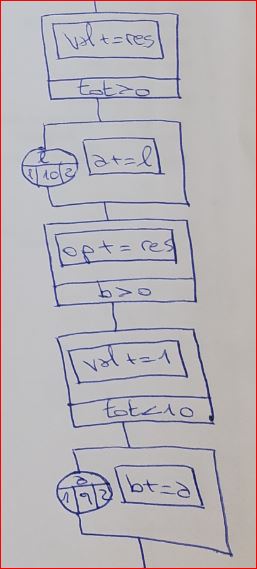 val+=res
tot>0
l
1 10 2
a+=l
opt=res
b>0
val+=1
tot<10
a
1 9 2
b+=a